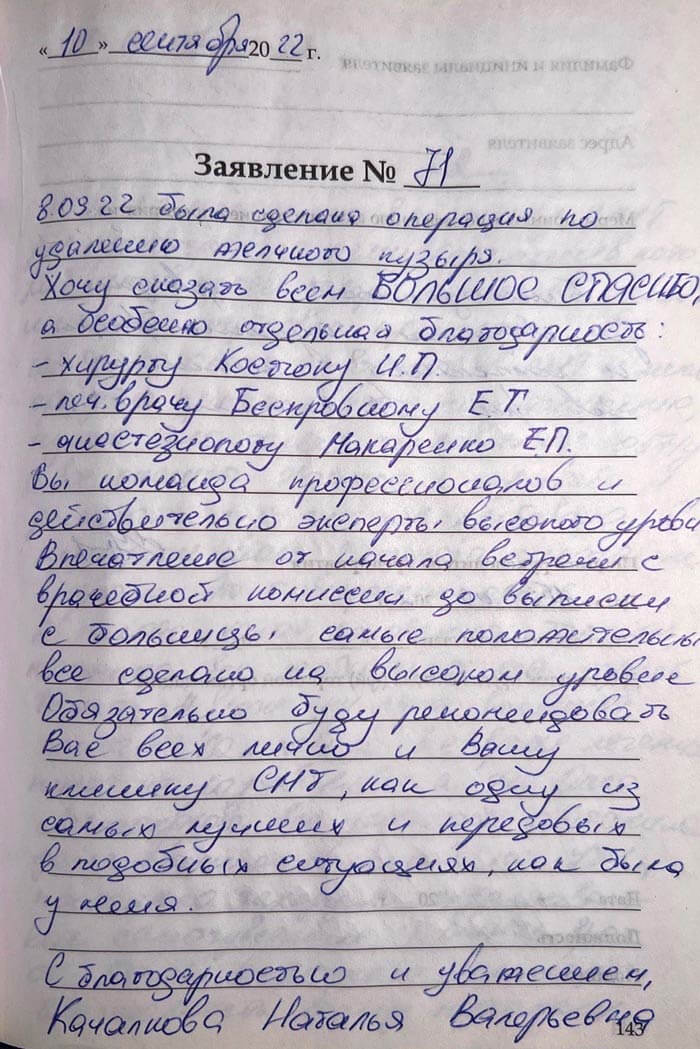 « 10 » сентября 2022 г.
Заявление № 71
8.09.22 была сделана операция по
удалению желчного пузыря.
Хочу сказать всем БОЛЬШОЕ СПАСИБО,
а особенно отдельная благодарность:
- хирургу Костюку И.П.
- леч. врачу Бескровному Е.Г.
- анастезиологу Макаренко Е.П.
Вы команда профессионалов и
действительно эксперты высокого уровн
Впечатление от начала встречи с
врачебной комиссии до выписки
с больницы самые положительны
все сделано на высоком уровне
Обязательно буду рекомендовать
Вас всех лично и Вашу
клинику СМТ, как одну из
самых лучших и передовых
в подобных ситуациях, как была
у меня.
С благодарностью и уважением,
Качалкова Наталья Валерьевна
143